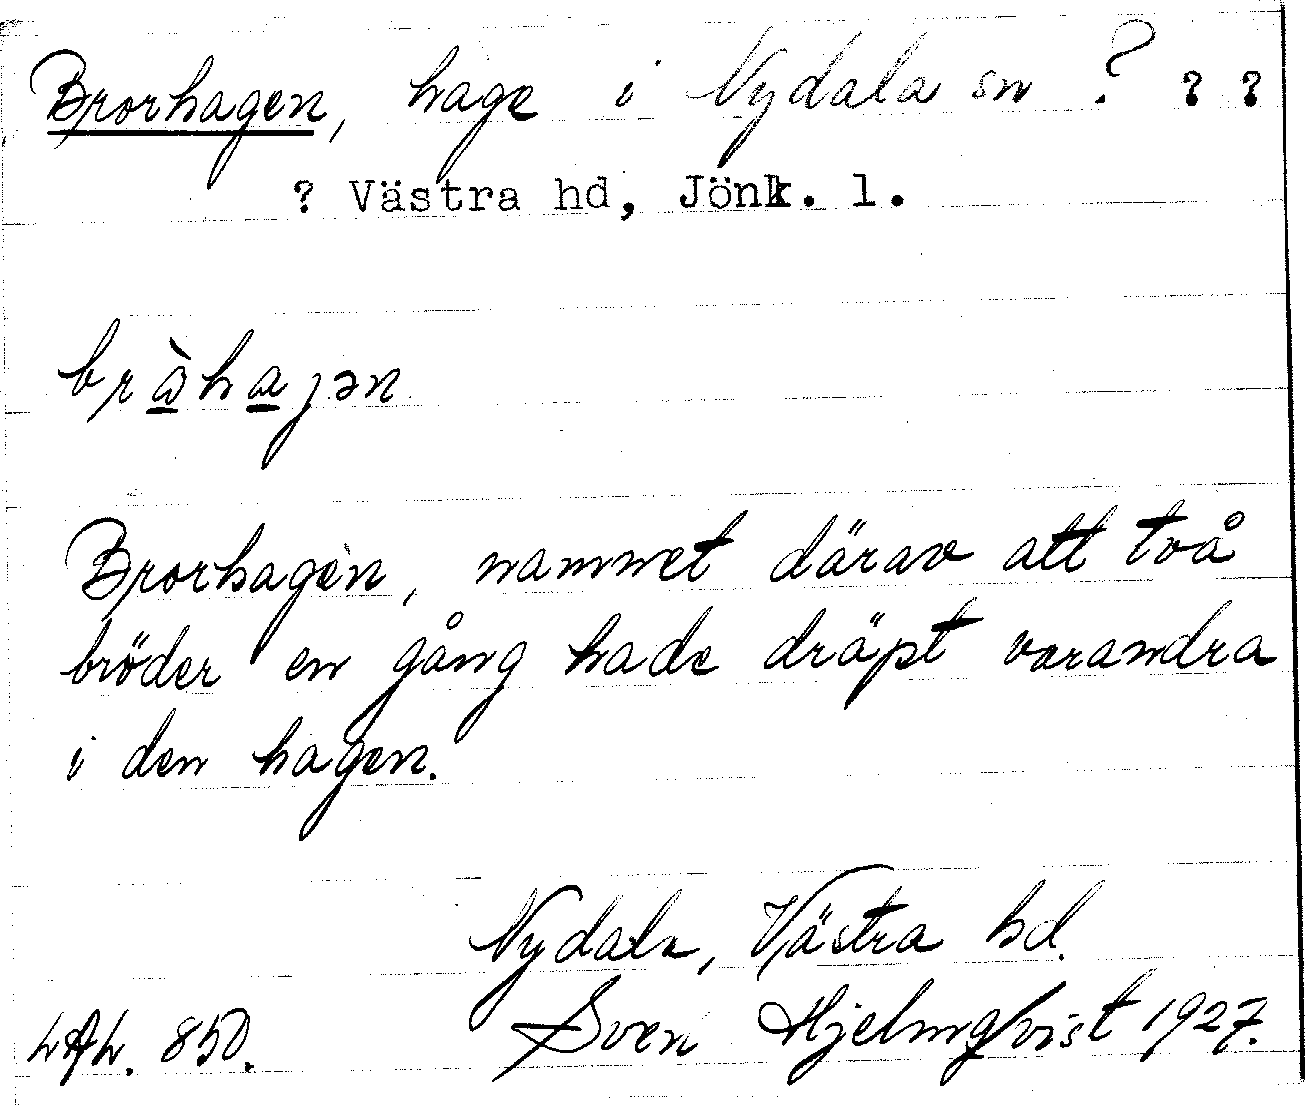 Brorhagen, hage i Nydala sn ? ? ?
? Västra hd, Jönk. l.
brὼhajən
Brorhagen, namnet därav att två
bröder en gång hade dräpt varandra
i den hagen.
Nydala, Västra hd.
LAL. 850. Sven Hjelmqvist 1927.